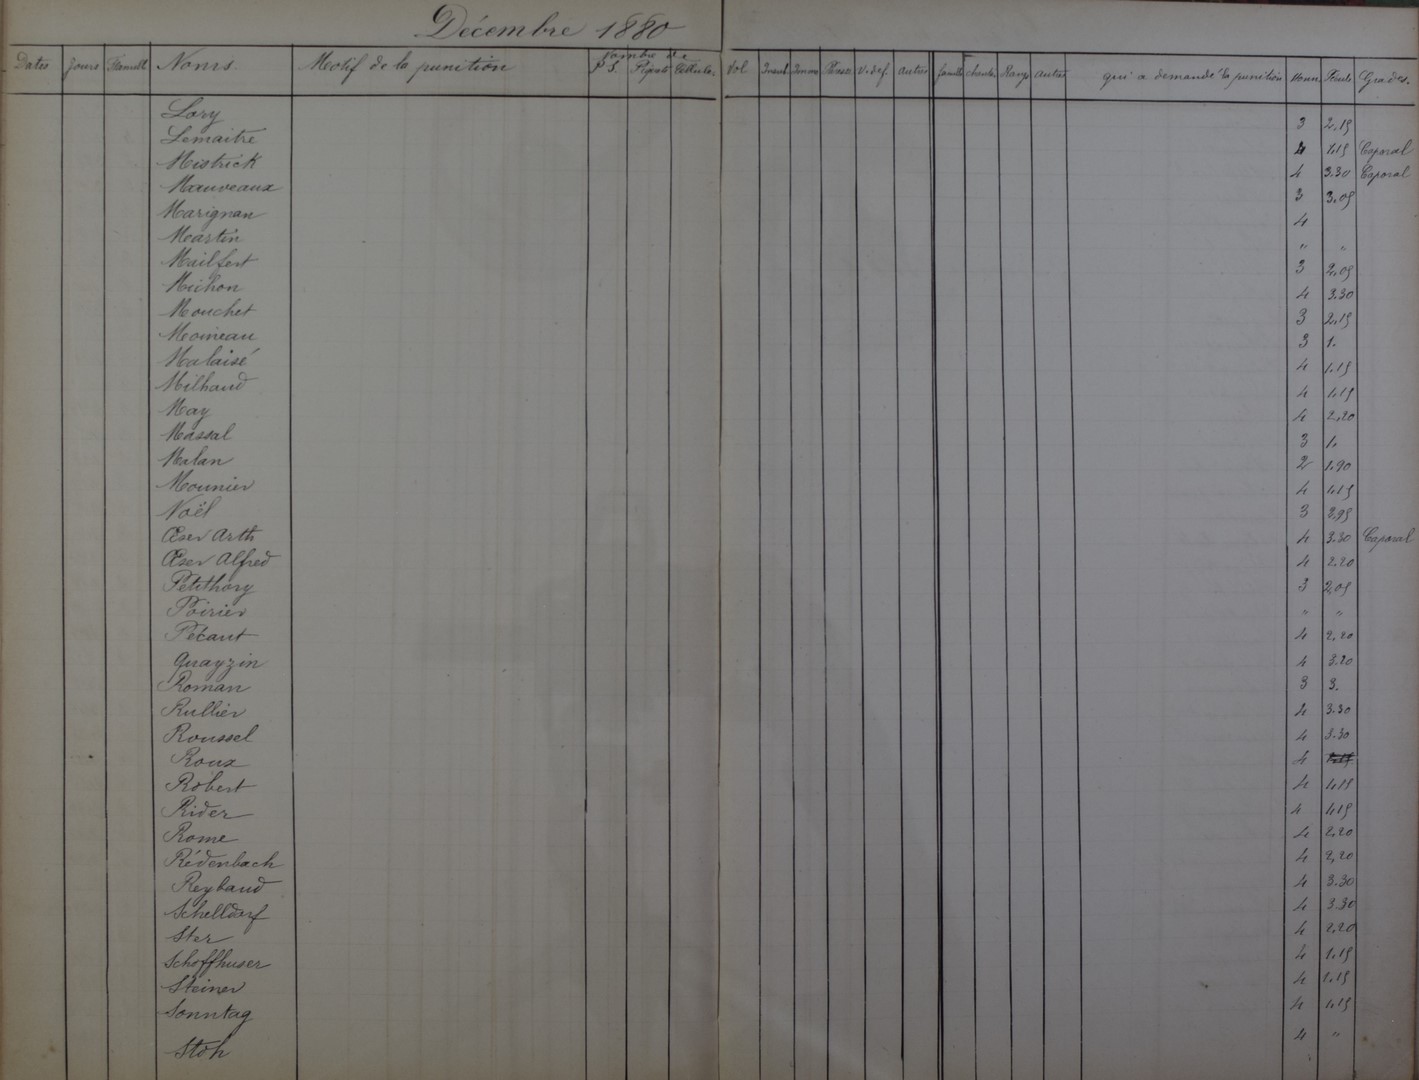 Décembre 1880
Dates Jours Famille Noms. Motif de la punition Nombre de P S. Piquets Cellule. Vol Insol Immo Paress V. def. autres famille chaule Rang autres qui a demandé la punition Monn Fruits Grades.
Lory 3 2.15
Lemaitre 4 1.15 Caporal
Mistrick 4 3.30 Caporal
Mauveaux 3 3.05
Marignan 4
Martin " "
Mailfert 3 2.05
Michon 4 3.30
Mouchet 3 2.15
Moineau 3 1.
Malaisé 4 1.15
Milhaud 4 1.15
May 4 2.20
Massal 3 1.
Malan 2 1.90
Mounier 4 1.15
Noël 3 2.95
Œser Arth 4 3.30 Caporal
Œser Alfred 4 2.20
Petithory 3 2.05
Poirier " "
Pécaut 4 2.20
Quayzin 4 3.20
Roman 3 3.
Rullier 4 3.30
Roussel 4 3.30
Roux 4
Robert 4 1.15
Rider 4 1.15
Rome 4 2.20
Rédenbach 4 2.20
Reybaud 4 3.30
Schelldorf 4 3.30
Ster 4 2.20
Schoffhuser 4 1.15
Steiner 4 1.15
Sonntag 4 1.15
Stoh 4 "